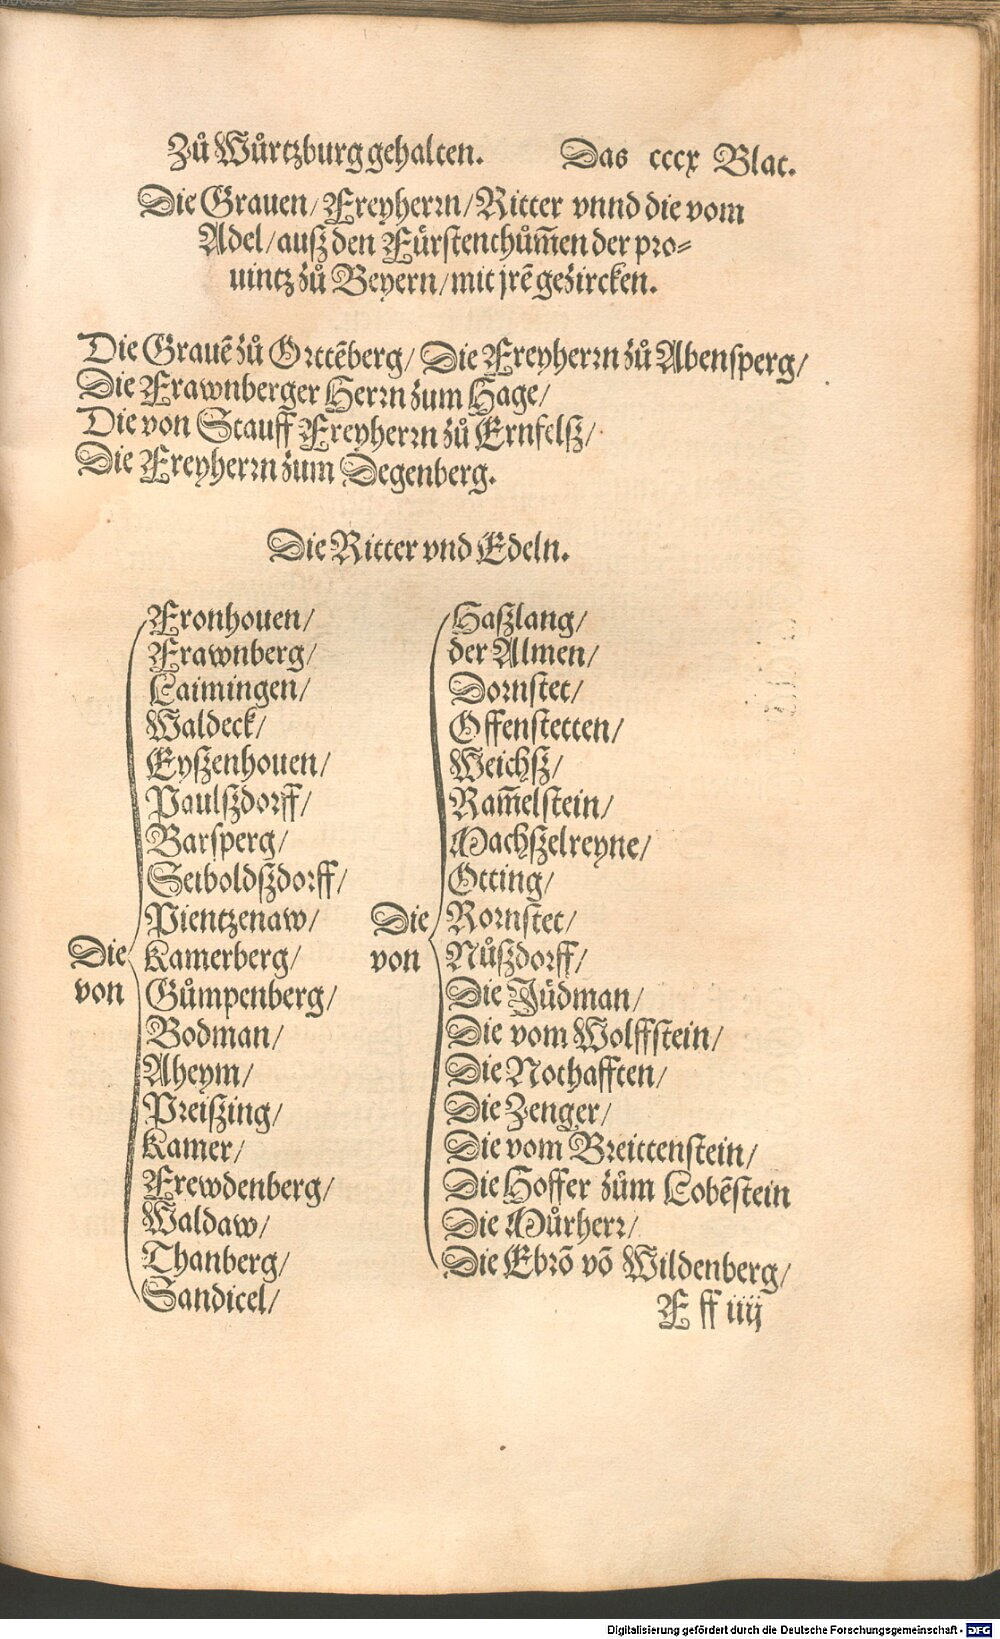 Zů Würtzburg gehalten. Das cccx Blat.
Die Grauen/ Freyherrn/ Ritter vnnd die vom
Adel/ auß den Fürstenthům̃en der pro-
uintz zů Beyern/ mit jrẽ gezircken.
Die Grauẽ zů Orttẽberg/ Die Freyherrn zů Abensperg/
Die Frawnberger Herrn zum Hage/
Die von Stauff Freyherrn zů Ernfelß/
Die Freyherrn zum Degenberg.
Die Ritter vnd Edeln.
Die von
Fronhouen/
Frawnberg/
Laimingen/
Waldeck/
Eyßenhouen/
Paulßdorff/
Barsperg/
Seiboldßdorff/
Pientzenaw/
Kamerberg/
Gůmpenberg/
Bodman/
Aheym/
Preißing/
Kamer/
Frewdenberg/
Waldaw/
Thanberg/
Sandicel/
Die von
Haßlang/
der Almen/
Dornstet/
Offenstetten/
Weichß/
Ram̃elstein/
Machßelreyne/
Otting/
Rornstet/
Nůßdorff/
Die Jüdman/
Die vom Wolffstein/
Die Nothafften/
Die Zenger/
Die vom Breittenstein/
Die Hoffer zům Lobẽstein
Die Můrherr/
Die Ebrõ võ Wildenberg/
F ff iiij
Digitalisierung gefördert durch die Deutsche Forschungsgemeinschaft - DFG